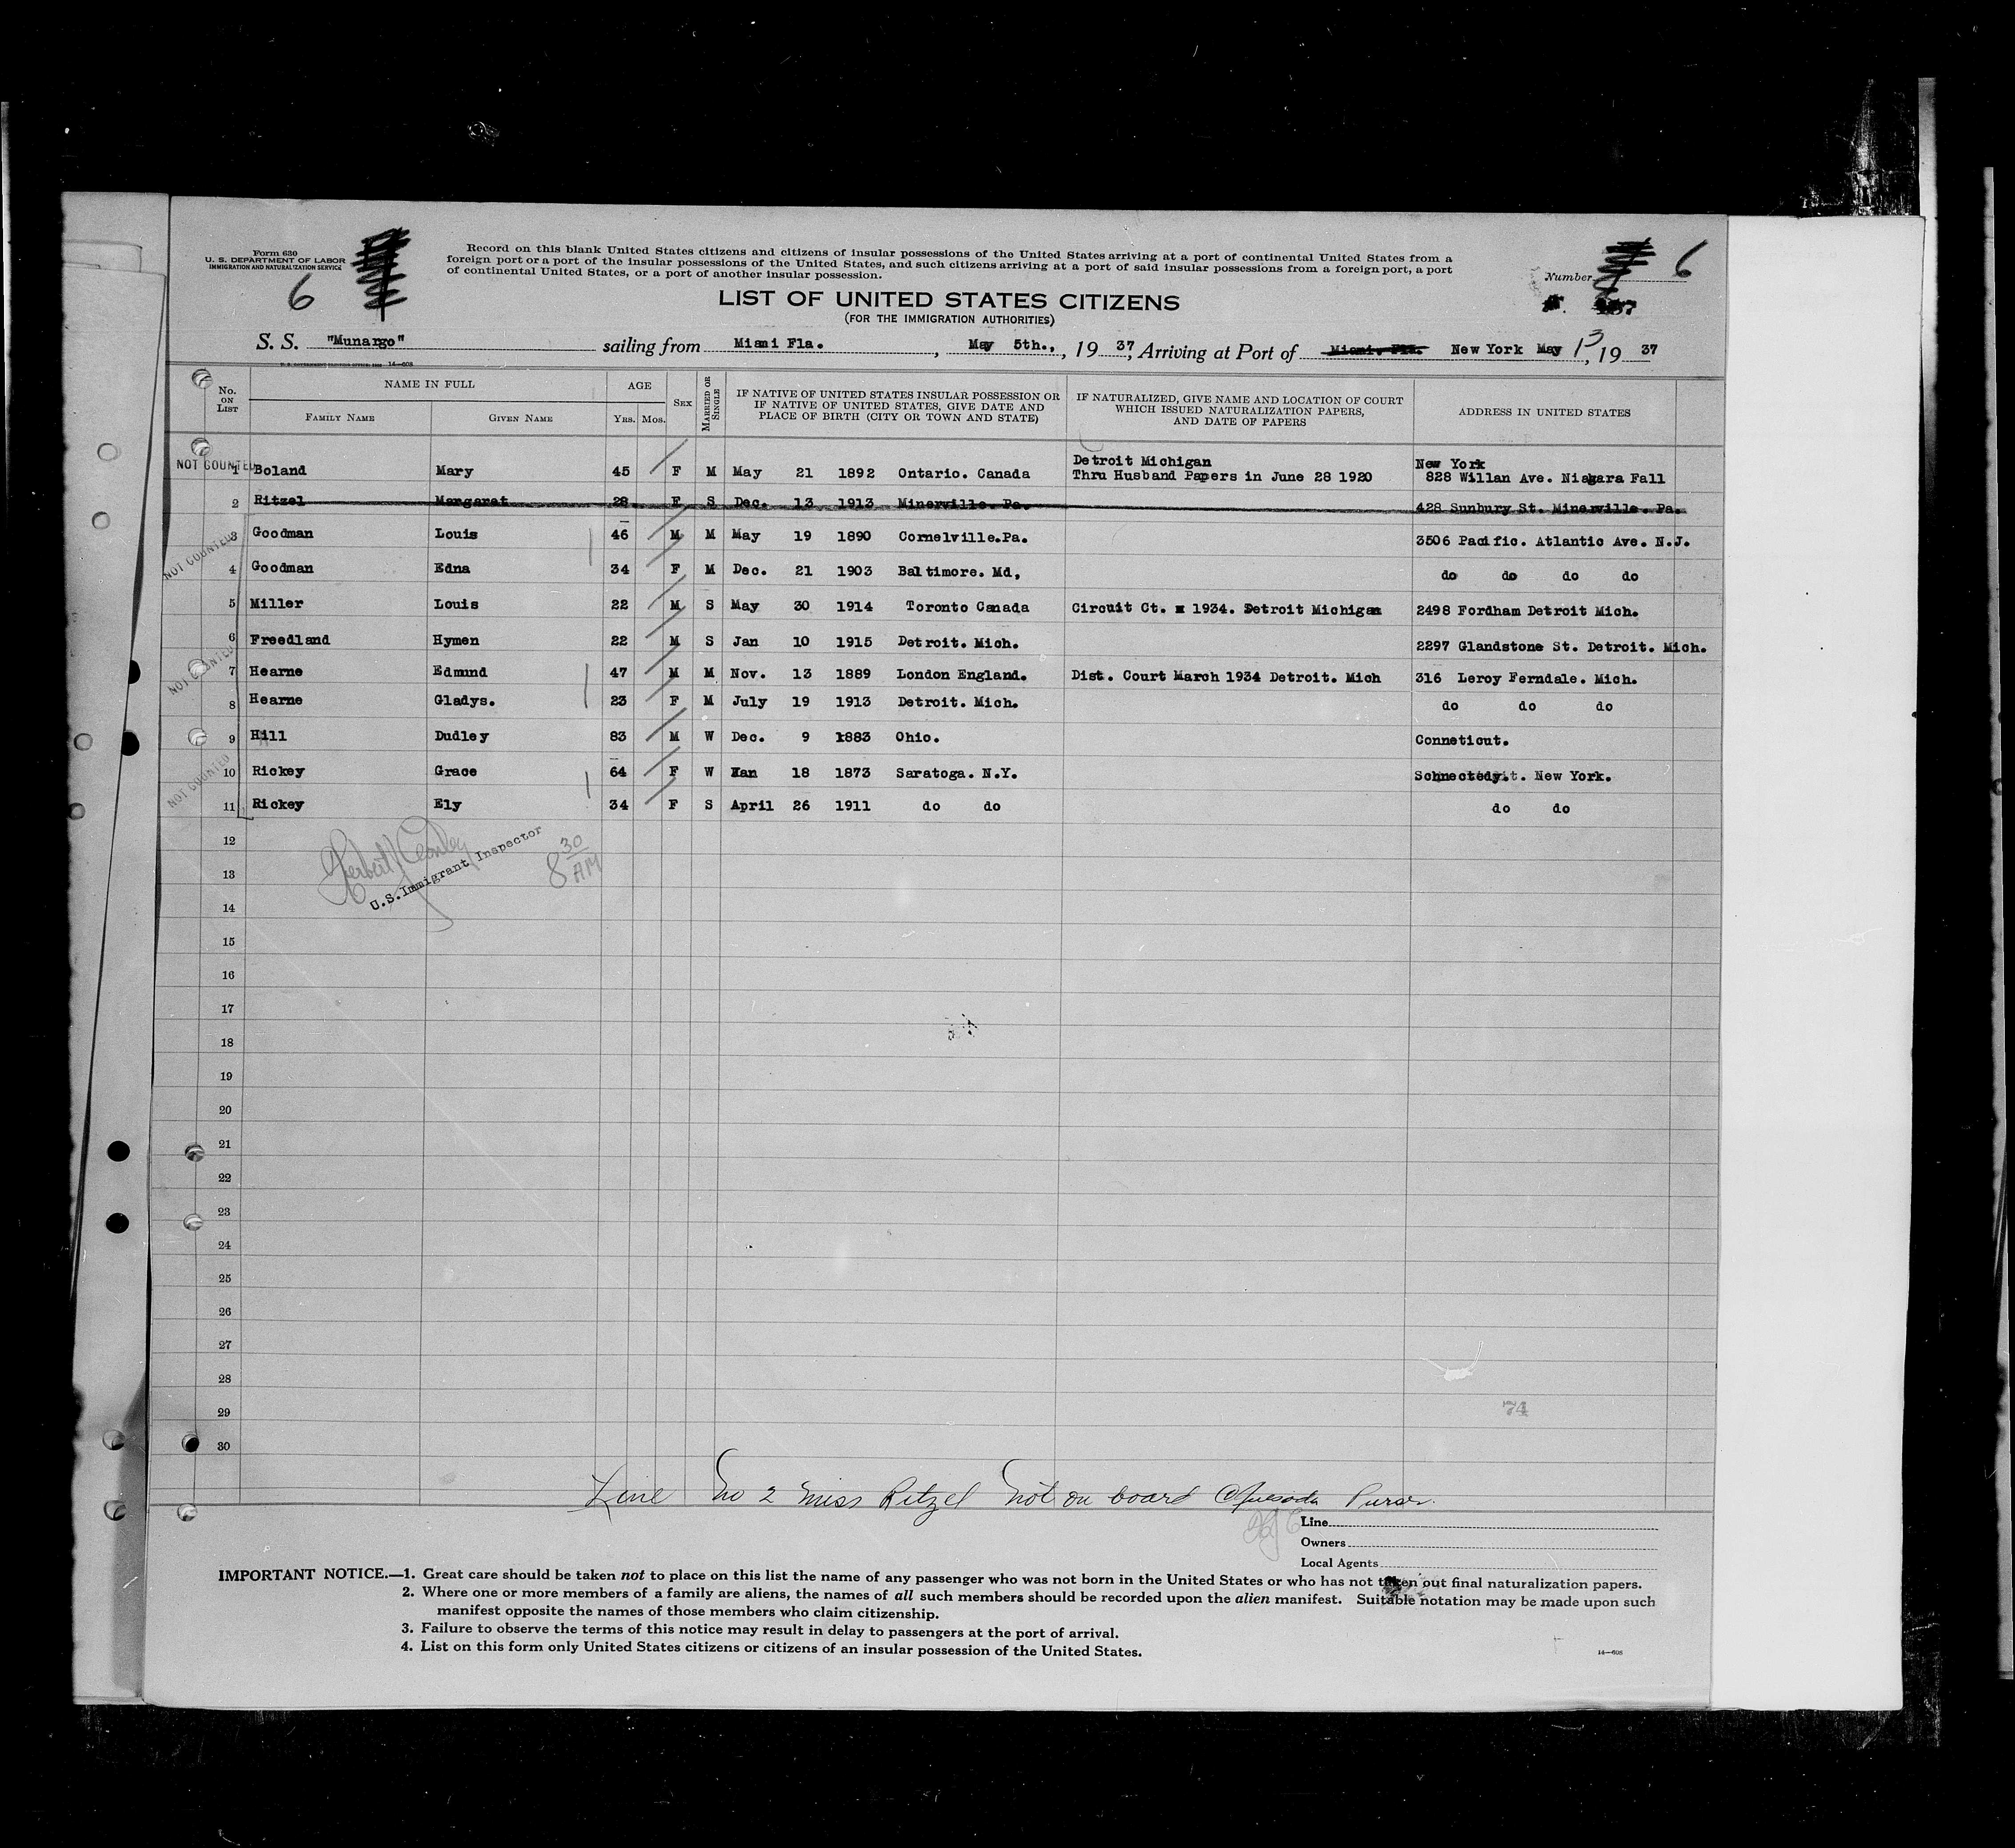 Form 630
U. S. DEPARTMENT OF LABOR
IMMIGRATION AND NATURALIZATION SERVICE
6
Record on this blank United States citizens and citizens of insular possessions of the United States arriving at a port of continental United States from a
foreign port or a port of the insular possessions of the United States, and such citizens arriving at a port of said insular possessions from a foreign port, a port
of continental United States, or a port of another insular possession.
Number 6
LIST OF UNITED STATES CITIZENS
(FOR THE IMMIGRATION AUTHORITIES)
S. S. "Munargo" sailing from Miami Fla. , May 5th., , 19 37, Arriving at Port of Miami. Fla. New York May 13, 19 37
14—608
No. ON LIST
NAME IN FULL
FAMILY NAME
GIVEN NAME
AGE
YRS. MOS.
SEX
MARRIED OR SINGLE
IF NATIVE OF UNITED STATES INSULAR POSSESSION OR
IF NATIVE OF UNITED STATES, GIVE DATE AND
PLACE OF BIRTH (CITY OR TOWN AND STATE)
IF NATURALIZED, GIVE NAME AND LOCATION OF COURT
WHICH ISSUED NATURALIZATION PAPERS,
AND DATE OF PAPERS
ADDRESS IN UNITED STATES
NOT COUNTED 1 Boland Mary 45 F M May 21 1892 Ontario. Canada Detroit Michigan
Thru Husband Papers in June 28 1920 New York
828 Willan Ave. Niagara Fall
2 Ritzel Margaret 28 F S Dec. 13 1913 Minerville. Pa. 428 Sunbury St. Minerville. Pa.
3 Goodman Louis 46 M M May 19 1890 Cornelville.Pa. 3506 Pacific. Atlantic Ave. N.J.
NOT COUNTED
4 Goodman Edna 34 F M Dec. 21 1903 Baltimore. Md, do do do do
5 Miller Louis 22 M S May 30 1914 Toronto Canada Circuit Ct. 1934. Detroit Michigan 2498 Fordham Detroit Mich.
6 Freedland Hymen 22 M S Jan 10 1915 Detroit. Mich. 2297 Glandstone St. Detroit. Mich.
NOT COUNTED
7 Hearne Edmund 47 M M Nov. 13 1889 London England. Dist. Court March 1934 Detroit. Mich 316 Leroy Ferndale. Mich.
8 Hearne Gladys. 23 F M July 19 1913 Detroit. Mich. do do do
9 Hill Dudley 83 M W Dec. 9 1883 Ohio. Conneticut.
NOT COUNTED
10 Rickey Grace 64 F W 18 1873 Saratoga. N.Y. New York.
11 Rickey Ely 34 F S April 26 1911 do do do do
12
Herbert
U.S.Immigrant Inspector
8 30 AM
13
14
15
16
17
18
19
20
21
22
23
24
25
26
27
28
29
74
30
Line No 2 Miss Ritzel not on board Quesada Purser.
Line
Owners
Local Agents
IMPORTANT NOTICE.—1. Great care should be taken not to place on this list the name of any passenger who was not born in the United States or who has not taken out final naturalization papers.
2. Where one or more members of a family are aliens, the names of all such members should be recorded upon the alien manifest. Suitable notation may be made upon such
manifest opposite the names of those members who claim citizenship.
3. Failure to observe the terms of this notice may result in delay to passengers at the port of arrival.
4. List on this form only United States citizens or citizens of an insular possession of the United States.
14—608